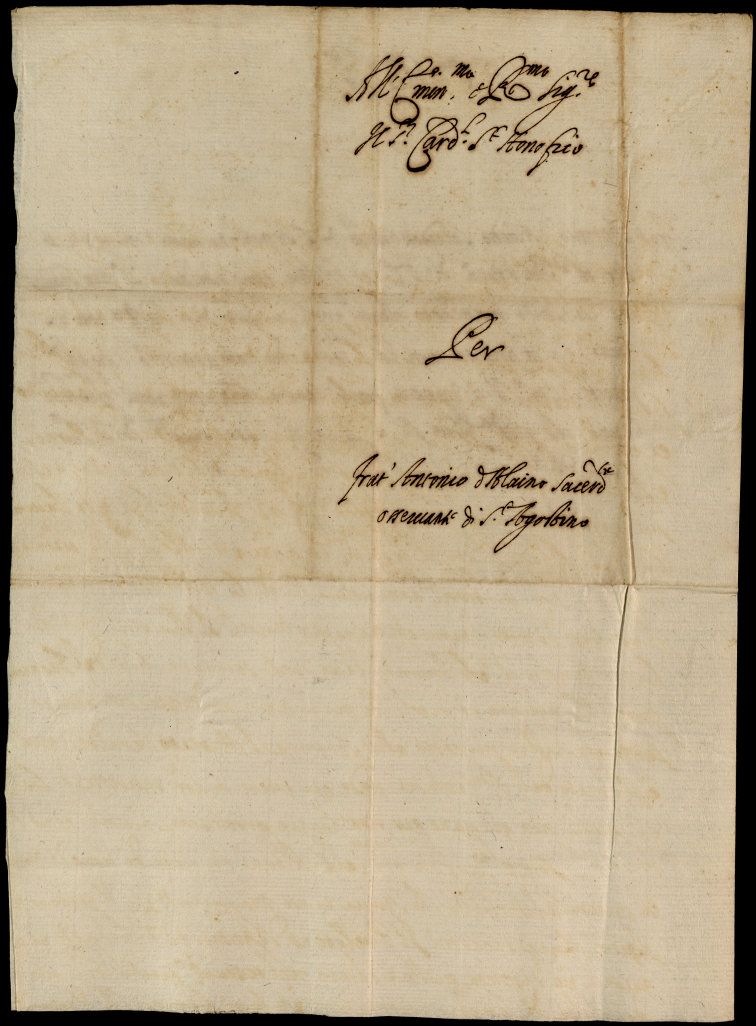 All' Emin.mo e R.mo Sig.re
Il S.r Card.l S.t Honofrio
Per
frat' Antonio Sacerd.te
osservant.e di S.t Agostino